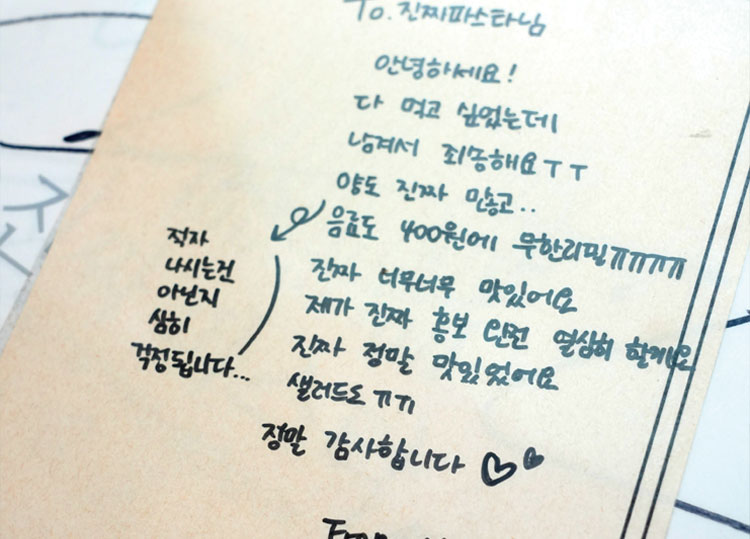 To. 진짜파스타님
안녕하세요!
다 먹고 싶었는데
남겨서 죄송해요ㅜㅜ
양도 진짜 많고..
음료도 400원에 무한리필ㅠㅠㅠㅠ
적자
나시는건
아닌지
심히
걱정됩니다...
진짜 너무너무 맛있어요
제가 진짜 홍보 완전 열심히 할게요
진짜 정말 맛있었어요
샐러드도 ㅠㅠ
정말 감사합니다 ♡♥
From.